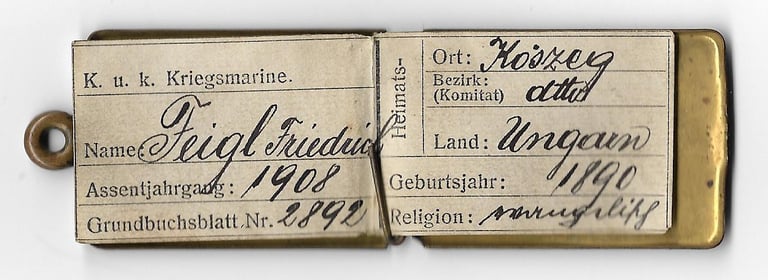 K. u. k. Kriegsmarine.
Name: Feigl Friedrich
Assentjahrgang: 1908
Grundbuchsblatt Nr. 2892
Heimats-
Ort: Köszeg
Bezirk:
(Komitat) dtto
Land: Ungarn
Geburtsjahr: 1890
Religion: evangelisch